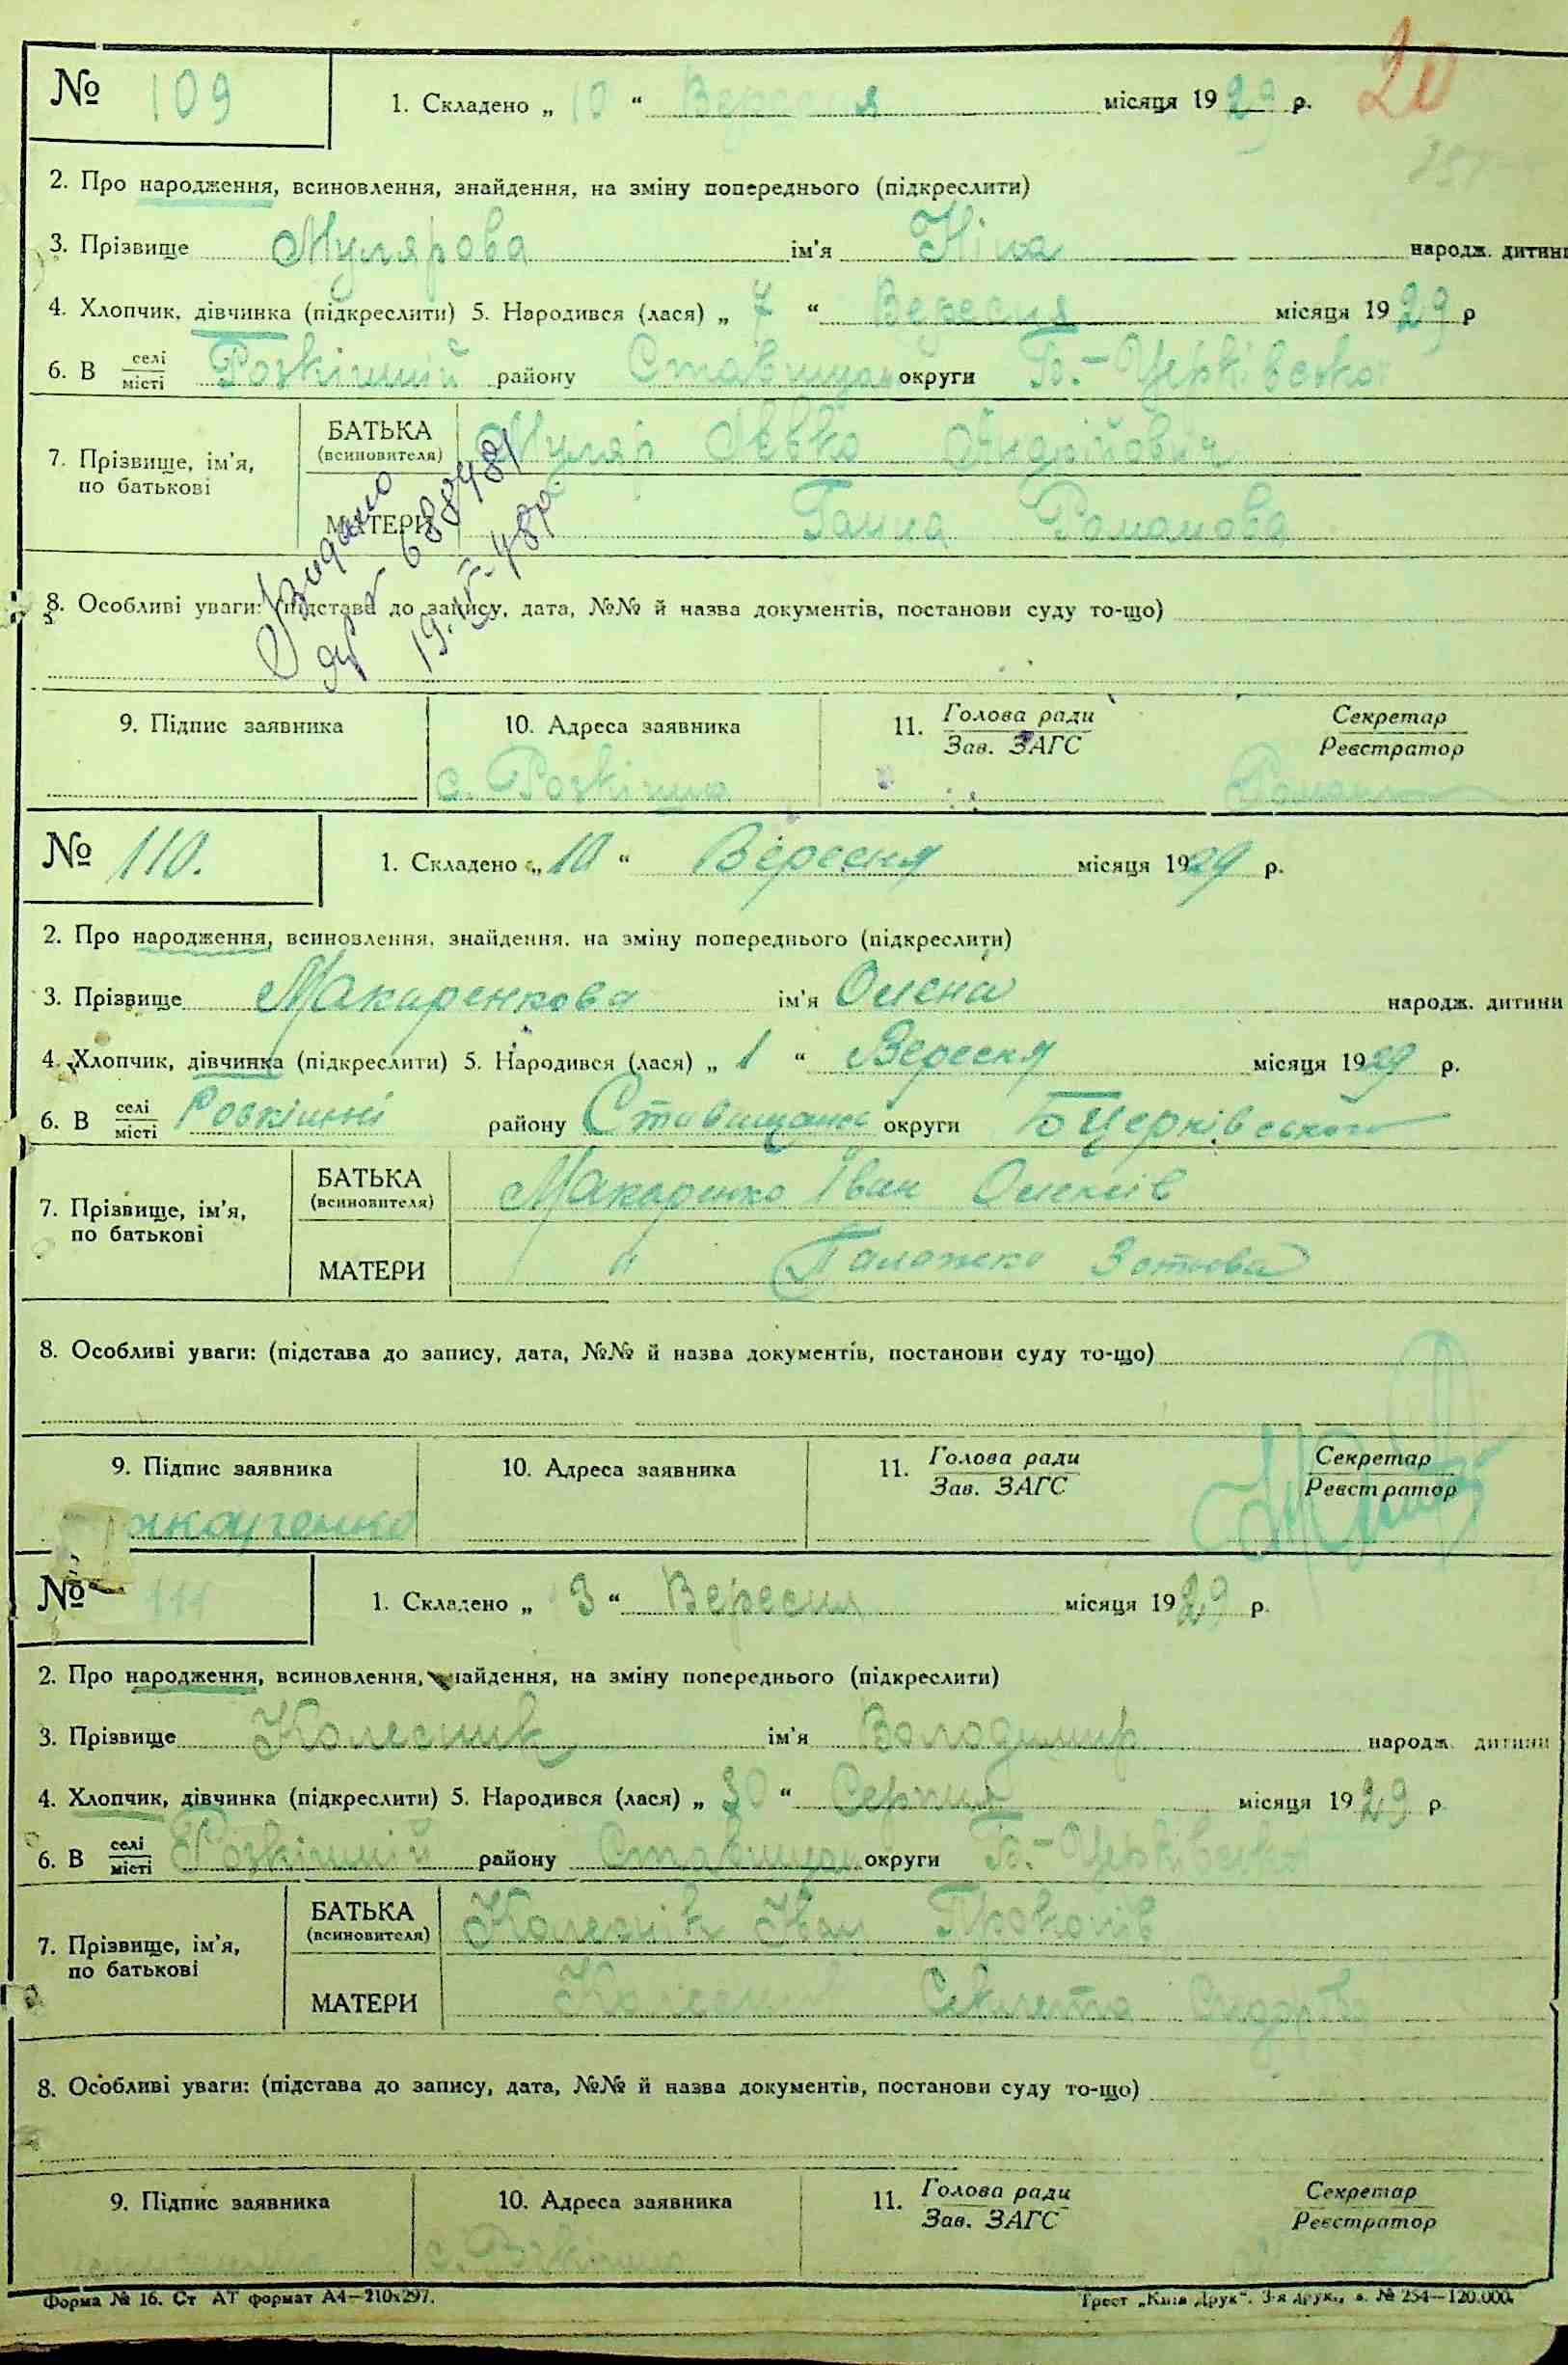 20
№ 109 1. Складено „ 10 “ Вересня місяця 1929 р.
2. Про народження, всиновлення, знайдення, на зміну попереднього (підкреслити)
3. Прізвище Мулярова ім'я Ніна народж. дитини
4. Хлопчик, дівчинка (підкреслити) 5. Народився (лася) „ 7 “ Вересня місяця 1929 р
6. В селі/місті Розкішній району Ставищан округи Б.-Церківської
7. Прізвище, ім'я, по батькові БАТЬКА (всиновителя) Муляр Левко Андрійович
МАТЕРИ Ганна Романова
Видано
688481
19.V.48р
8. Особливі уваги: (підстава до запису, дата, №№ й назва документів, постанови суду то-що)
9. Підпис заявника 10. Адреса заявника 11. Голова ради/Зав. ЗАГС Секретар/Реєстратор
с. Розкішна
№ 110. 1. Складено „ 10 “ Вересня місяця 1929 р.
2. Про народження, всиновлення, знайдення, на зміну попереднього (підкреслити)
3. Прізвище Макаренкова ім'я Олена народж. дитини
4. Хлопчик, дівчинка (підкреслити) 5. Народився (лася) „ 1 “ Вересня місяця 1929 р.
6. В селі/місті Розкішні району Ставищани округи БЦерківського
7. Прізвище, ім'я, по батькові БАТЬКА (всиновителя) Макаренко Іван Олексів
МАТЕРИ " Палажка Зотова
8. Особливі уваги: (підстава до запису, дата, №№ й назва документів, постанови суду то-що)
9. Підпис заявника 10. Адреса заявника 11. Голова ради/Зав. ЗАГС Секретар/Реєстратор
№ 111 1. Складено „ 3 “ Вересня місяця 1929 р.
2. Про народження, всиновлення, знайдення, на зміну попереднього (підкреслити)
3. Прізвище Колесник ім'я Володимир народж. дитини
4. Хлопчик, дівчинка (підкреслити) 5. Народився (лася) „ 30 “ Серпня місяця 1929 р
6. В селі/місті Розкішній району Ставищан округи Б.-Церківської
7. Прізвище, ім'я, по батькові БАТЬКА (всиновителя) Колеснік Іван Прокопів
МАТЕРИ Секлета
8. Особливі уваги: (підстава до запису, дата, №№ й назва документів, постанови суду то-що)
9. Підпис заявника 10. Адреса заявника 11. Голова ради/Зав. ЗАГС Секретар/Реєстратор
с. Розкішна
Форма № 16. Ст АТ формат А4—210х297. Трест „Київ Друк“. 3-я друк., з. № 254—120.000.